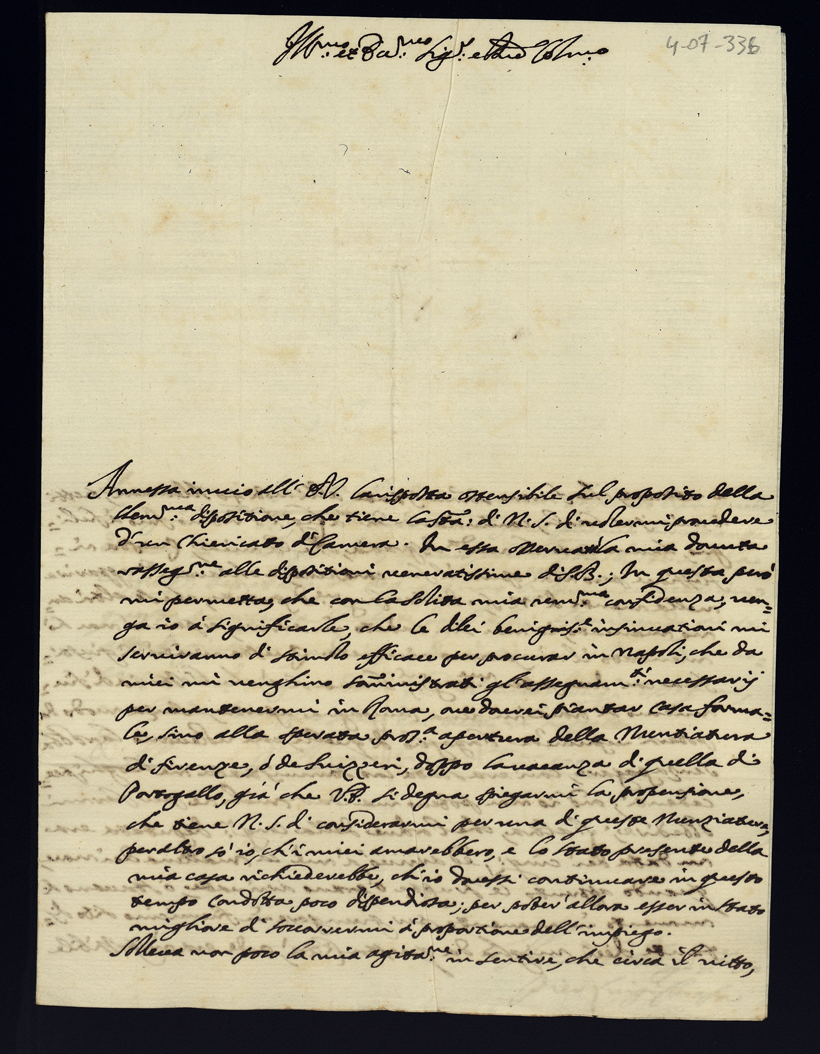 4-07-336
Ill.mo et R.mo Sig.r e P.ne Col.mo
Annessa invio all' V.S. la risposta ostensibile sul proposito della
clem.ma dispositione, che tiene la S.tà: di N. S. di volermi provedere
d'un Chiericato di Camera. In essa osserverà la mia dovuta
rasseg.ne alle dispositioni veneratissime di S.B.; In questa però
mi permetta, che con la solita mia rev.ma confidenza, ven=
ga io à significarle, che le di lei benignis.e insinuationi mi
serviranno di stimolo efficace per procurar in Napoli, che da
miei mi venghino somministrati gl'assegnam.ti necessarij
per mantenermi in Roma, ove doverei piantar casa forma=
le, sino alla sperata pros.a apertura della Nuntiatura
di Firenze, ò de Suizzeri, doppo la vacanza di quella di
Portogallo, già che V.S. si degna spiegarmi la propensione,
che tiene N. S. di considerarmi per una di queste Nunziature,
peraltro sò io, ch'i miei amarebbero, e lo stato presente della
mia casa richiederebbe, ch'io dovessi continuare in questo
tempo condotta poco dispendiosa, per poter allora esser in stato
migliore di soccorrermi à proportione dell'impiego.
Solleva non poco la mia agita.ne in sentire, che circa il vitto,